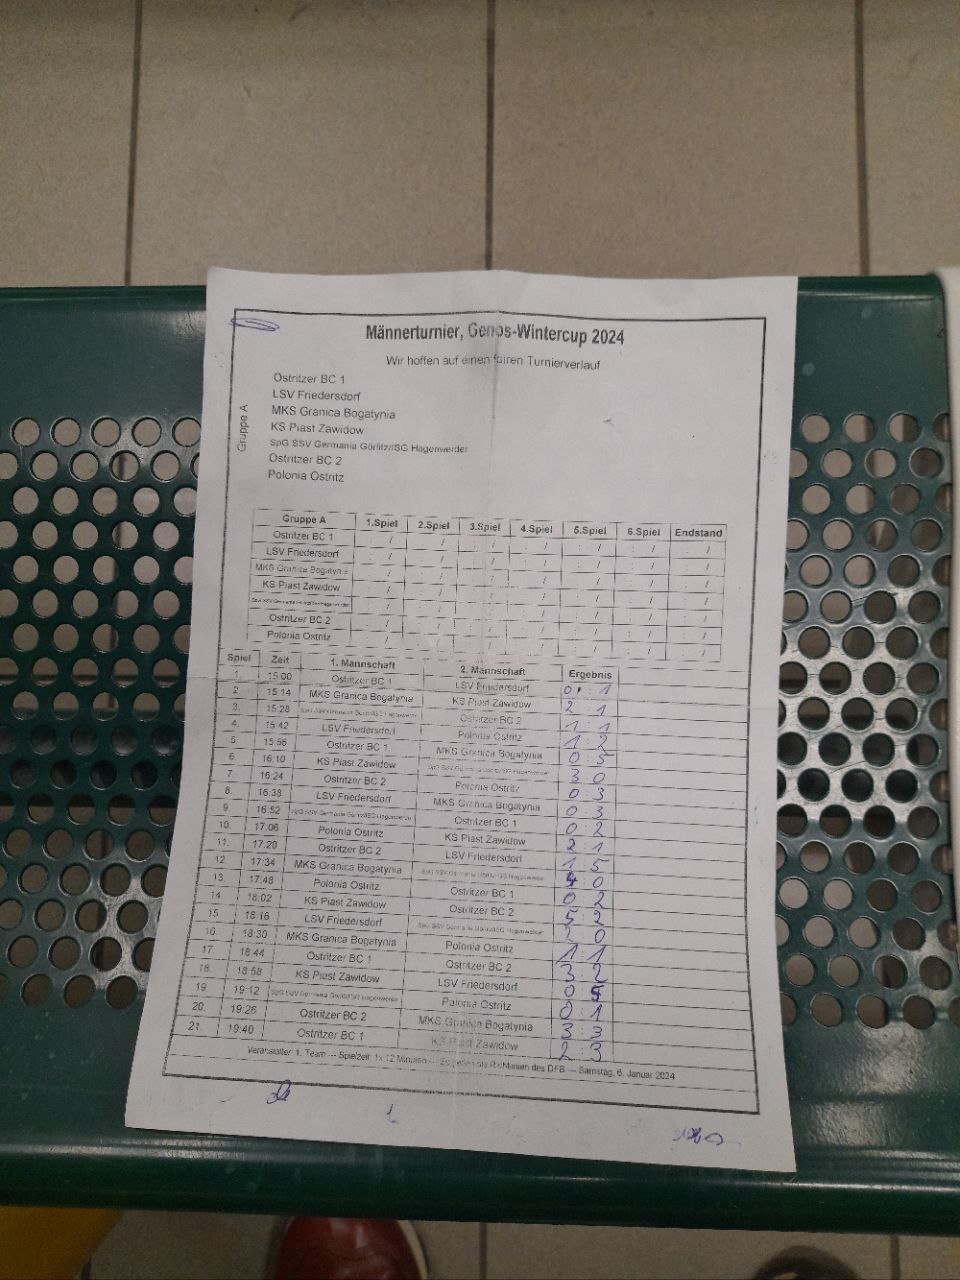 Männerturnier, Genos-Wintercup 2024
Wir hoffen auf einen fairen Turnierverlauf
Gruppe A
Ostritzer BC 1
LSV Friedersdorf
MKS Granica Bogatynia
KS Piast Zawidow
SpG SSV Germania Görlitz/ISG Hagenwerder
Ostritzer BC 2
Polonia Ostritz
Gruppe A 1.Spiel 2.Spiel 3.Spiel 4.Spiel 5.Spiel 6.Spiel Endstand
Ostritzer BC 1 : / : / : / : / : / : / : /
LSV Friedersdorf : / : / : / : / : / : / : /
MKS Granica Bogatynia : / : / : / : / : / : / : /
KS Piast Zawidow : / : / : / : / : / : / : /
: / : / : / : / : / : / : /
Ostritzer BC 2 : / : / : / : / : / : / : /
Polonia Ostritz : / : / : / : / : / : / : /
Spiel Zeit 1. Mannschaft 2. Mannschaft Ergebnis
1. 15:00 Ostritzer BC 1 LSV Friedersdorf 0 : 1
2. 15:14 MKS Granica Bogatynia KS Piast Zawidow 2 : 1
3. 15:28 Ostritzer BC 2 1 : 1
4. 15:42 LSV Friedersdorf Polonia Ostritz 1 : 2
5. 15:56 Ostritzer BC 1 MKS Granica Bogatynia 0 : 5
6. 16:10 KS Piast Zawidow 3 : 0
7. 16:24 Ostritzer BC 2 Polonia Ostritz 0 : 3
8. 16:38 LSV Friedersdorf MKS Granica Bogatynia 0 : 3
9. 16:52 Ostritzer BC 1 0 : 2
10. 17:06 Polonia Ostritz KS Piast Zawidow 2 : 1
11. 17:20 Ostritzer BC 2 LSV Friedersdorf 1 : 5
12. 17:34 MKS Granica Bogatynia 4 : 0
13. 17:48 Polonia Ostritz Ostritzer BC 1 0 : 2
14. 18:02 KS Piast Zawidow Ostritzer BC 2 5 : 2
15. 18:16 LSV Friedersdorf : 0
16. 18:30 MKS Granica Bogatynia Polonia Ostritz 1 : 1
17. 18:44 Ostritzer BC 1 Ostritzer BC 2 3 : 2
18. 18:58 KS Piast Zawidow LSV Friedersdorf 0 : 5
19. 19:12 Polonia Ostritz 0 : 1
20. 19:26 Ostritzer BC 2 MKS Granica Bogatynia 3 : 3
21. 19:40 Ostritzer BC 1 KS Piast Zawidow 2 : 3
Veranstalter: 1. Team --- Spielzeit: 1x 12 Minuten --- Es gelten die Richtlinien des DFB --- Samstag, 6. Januar 2024